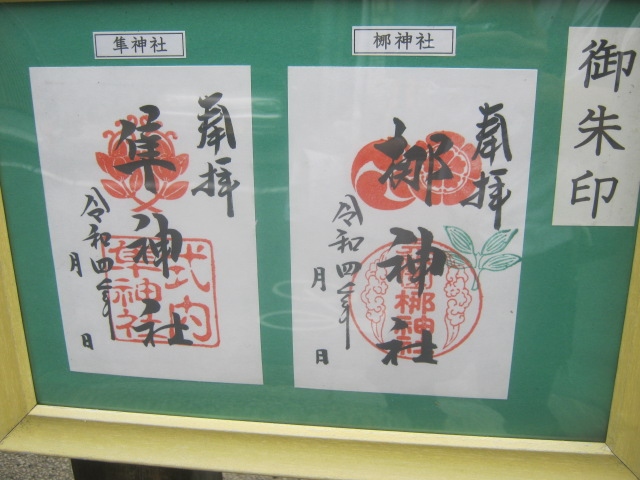 御朱印
梛神社
奉拝
梛神社
令和四年
月
日
隼神社
奉拝
隼神社
令和四年
月
日
式内
隼神社
梛神社